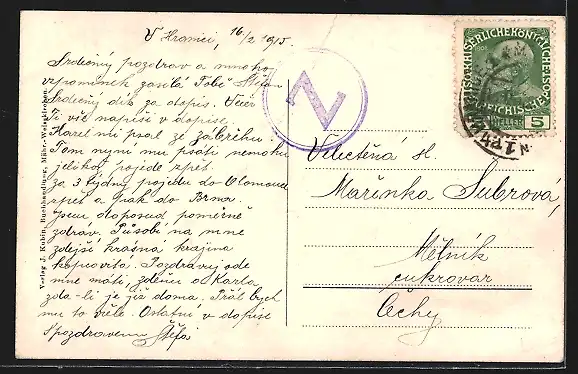 V Hranici, 16/2 1915.
Srdečný pozdrav a mnoho
vzpomínek zasílá Tobě Štefan
Srdečný dík za dopis. Včer
Ti vše napíši v dopise.
Karel mi psal ze Zábřehu.
Tom nyní mu psáti nemohu
jelikož pojede zpět.
za 3 týdny pojedu do Olomouce
zpět a pak do Brna.
Jsem doposud poměrně
zdráv. Působí na mne
zdejší krásná krajina
kopcovitá. Pozdravuj ode
mne máti, Zdénu a Karla,
zda-li je již doma. Přál bych
mu to vřele. Ostatní v dopise
S pozdravem Štefa
Verlag J. Kubin, Buchhandlung, Mähr.-Weisskirchen.
Z
5
HELLER
Velectěná sl.
Mařinka Subrová,
Mělník
cukrovar
Čechy